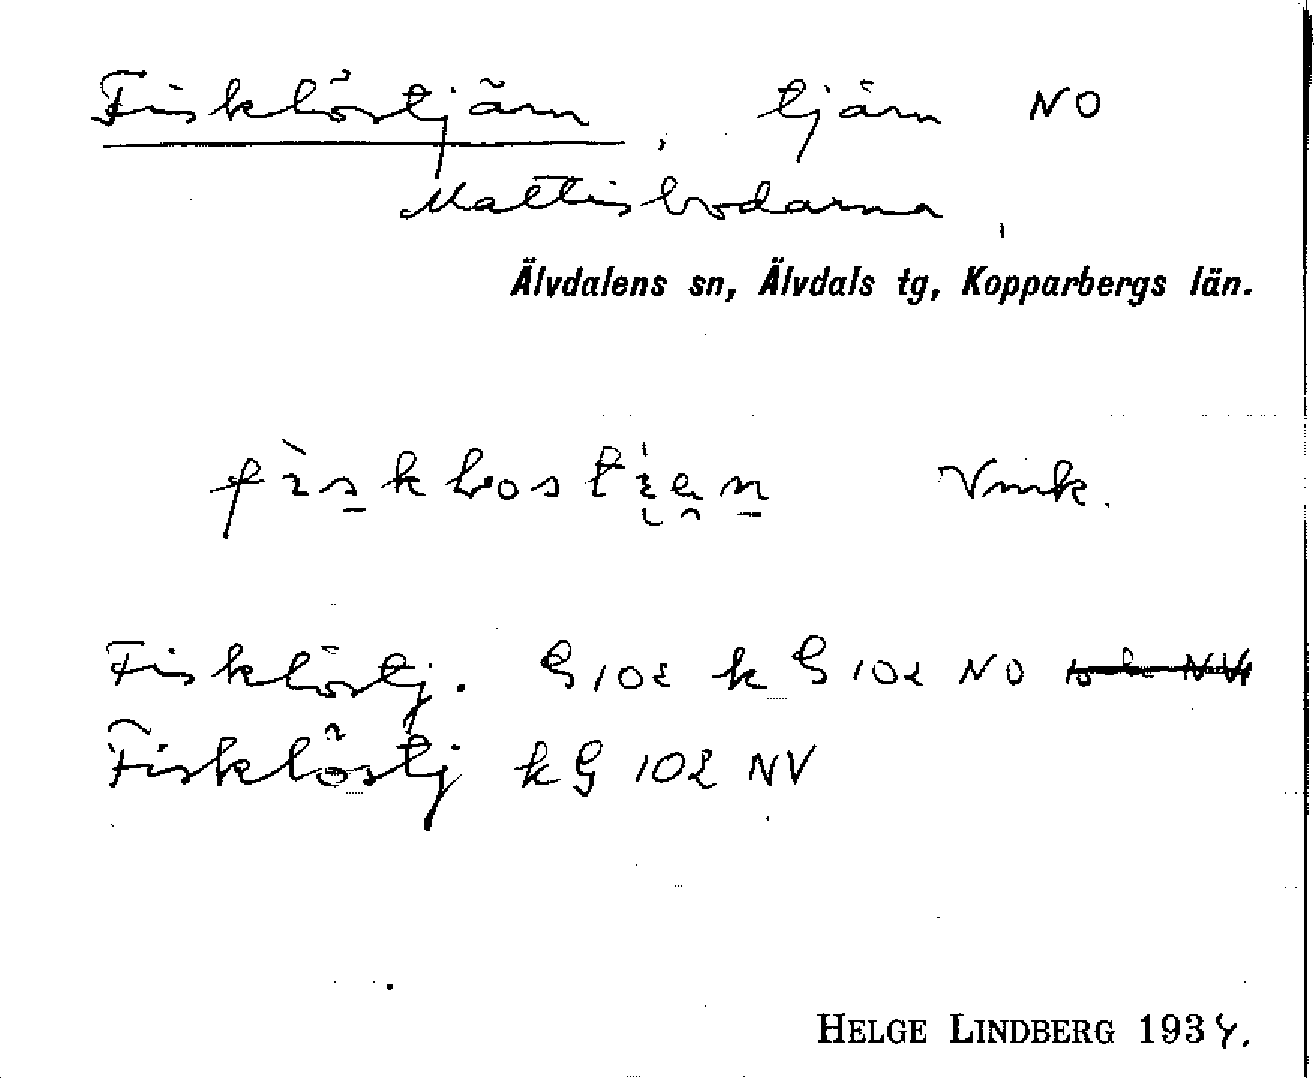 Fisklöstjärn, tjärn NO
Mattisbodarna,
Älvdalens sn, Älvdals tg, Kopparbergs län.
Vmk.
Fisklöstj. G 102 k G 102 NO
Fisklöstj k G 102 NV
HELGE LINDBERG 1934.